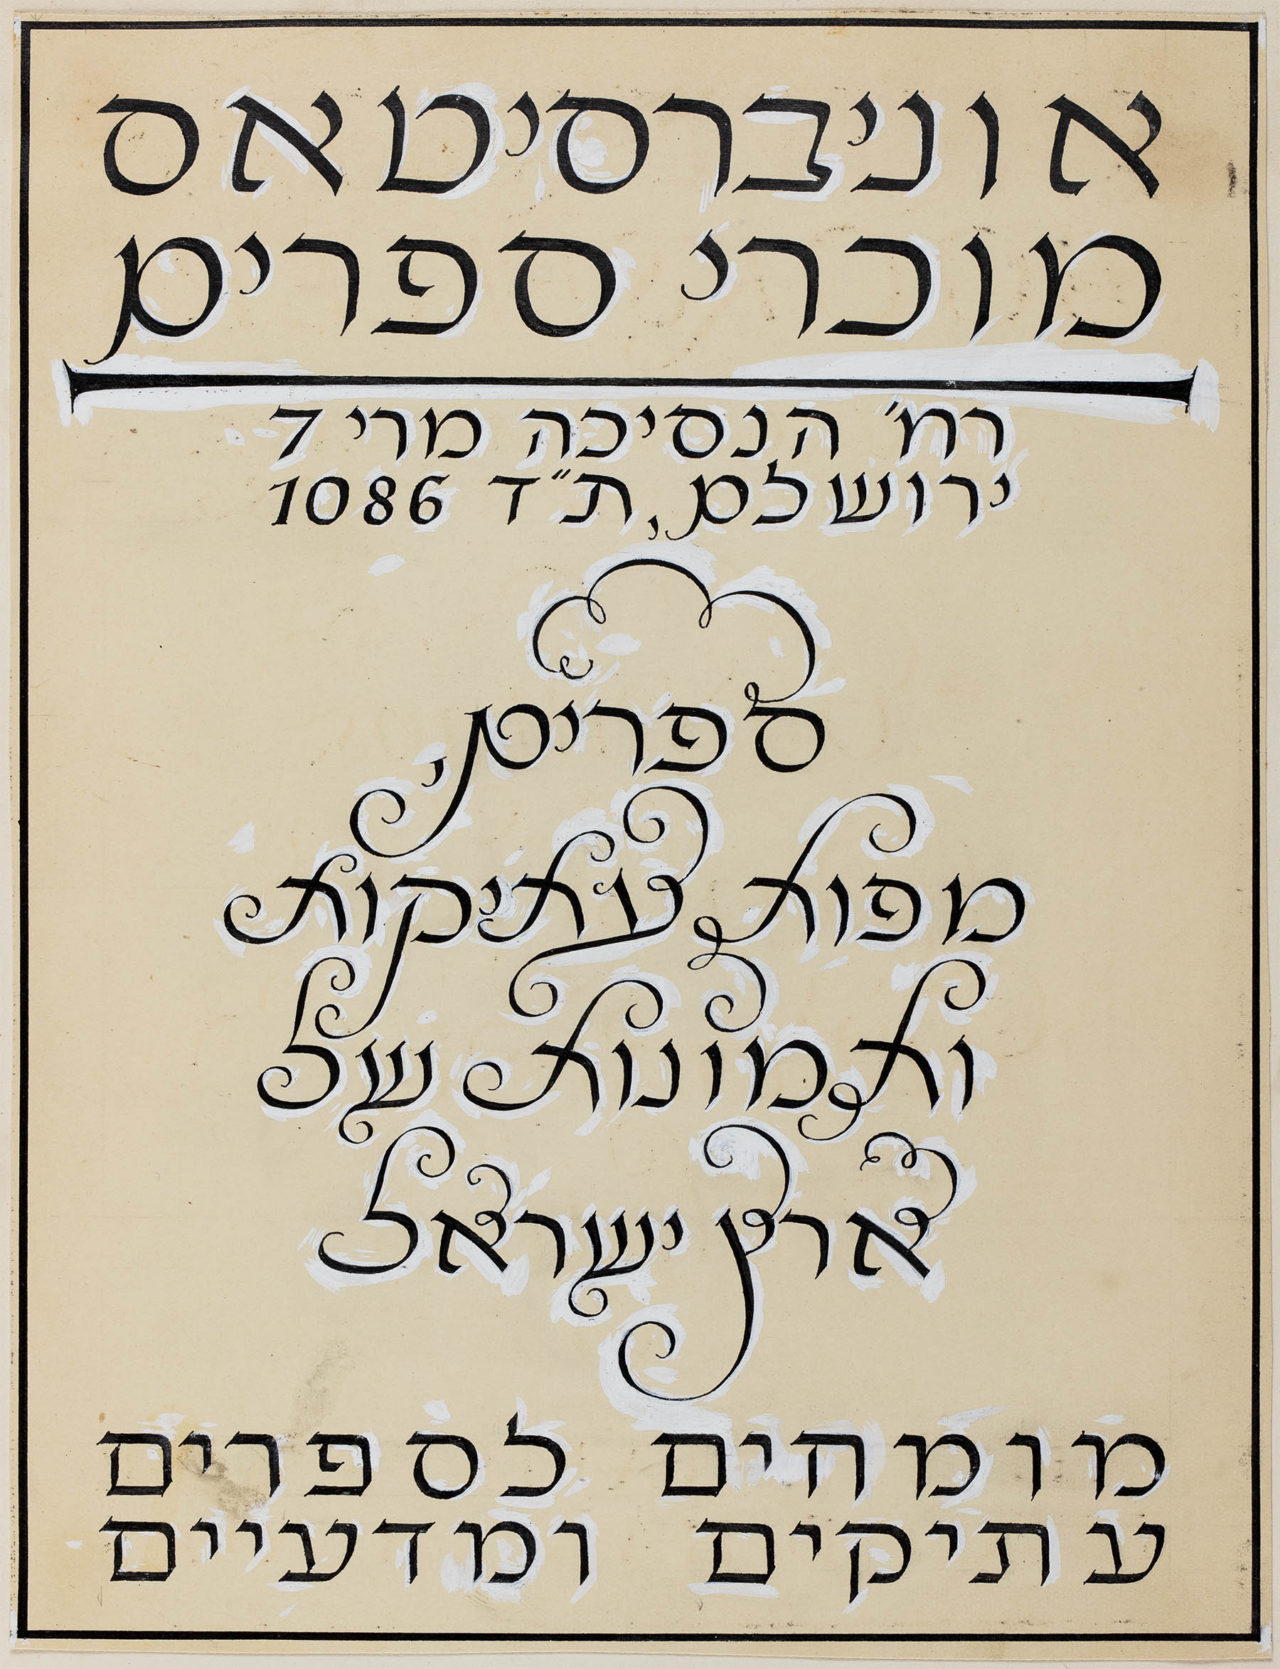 אוניברסיטאס
מוכרי ספרים
רח׳ הנסיכה מרי 7
ירושלם, ת״ד 1086
ספרים,
מפות עתיקות
ותמונות של
ארץ ישראל
מומחים לספרים
עתיקים ומדעיים